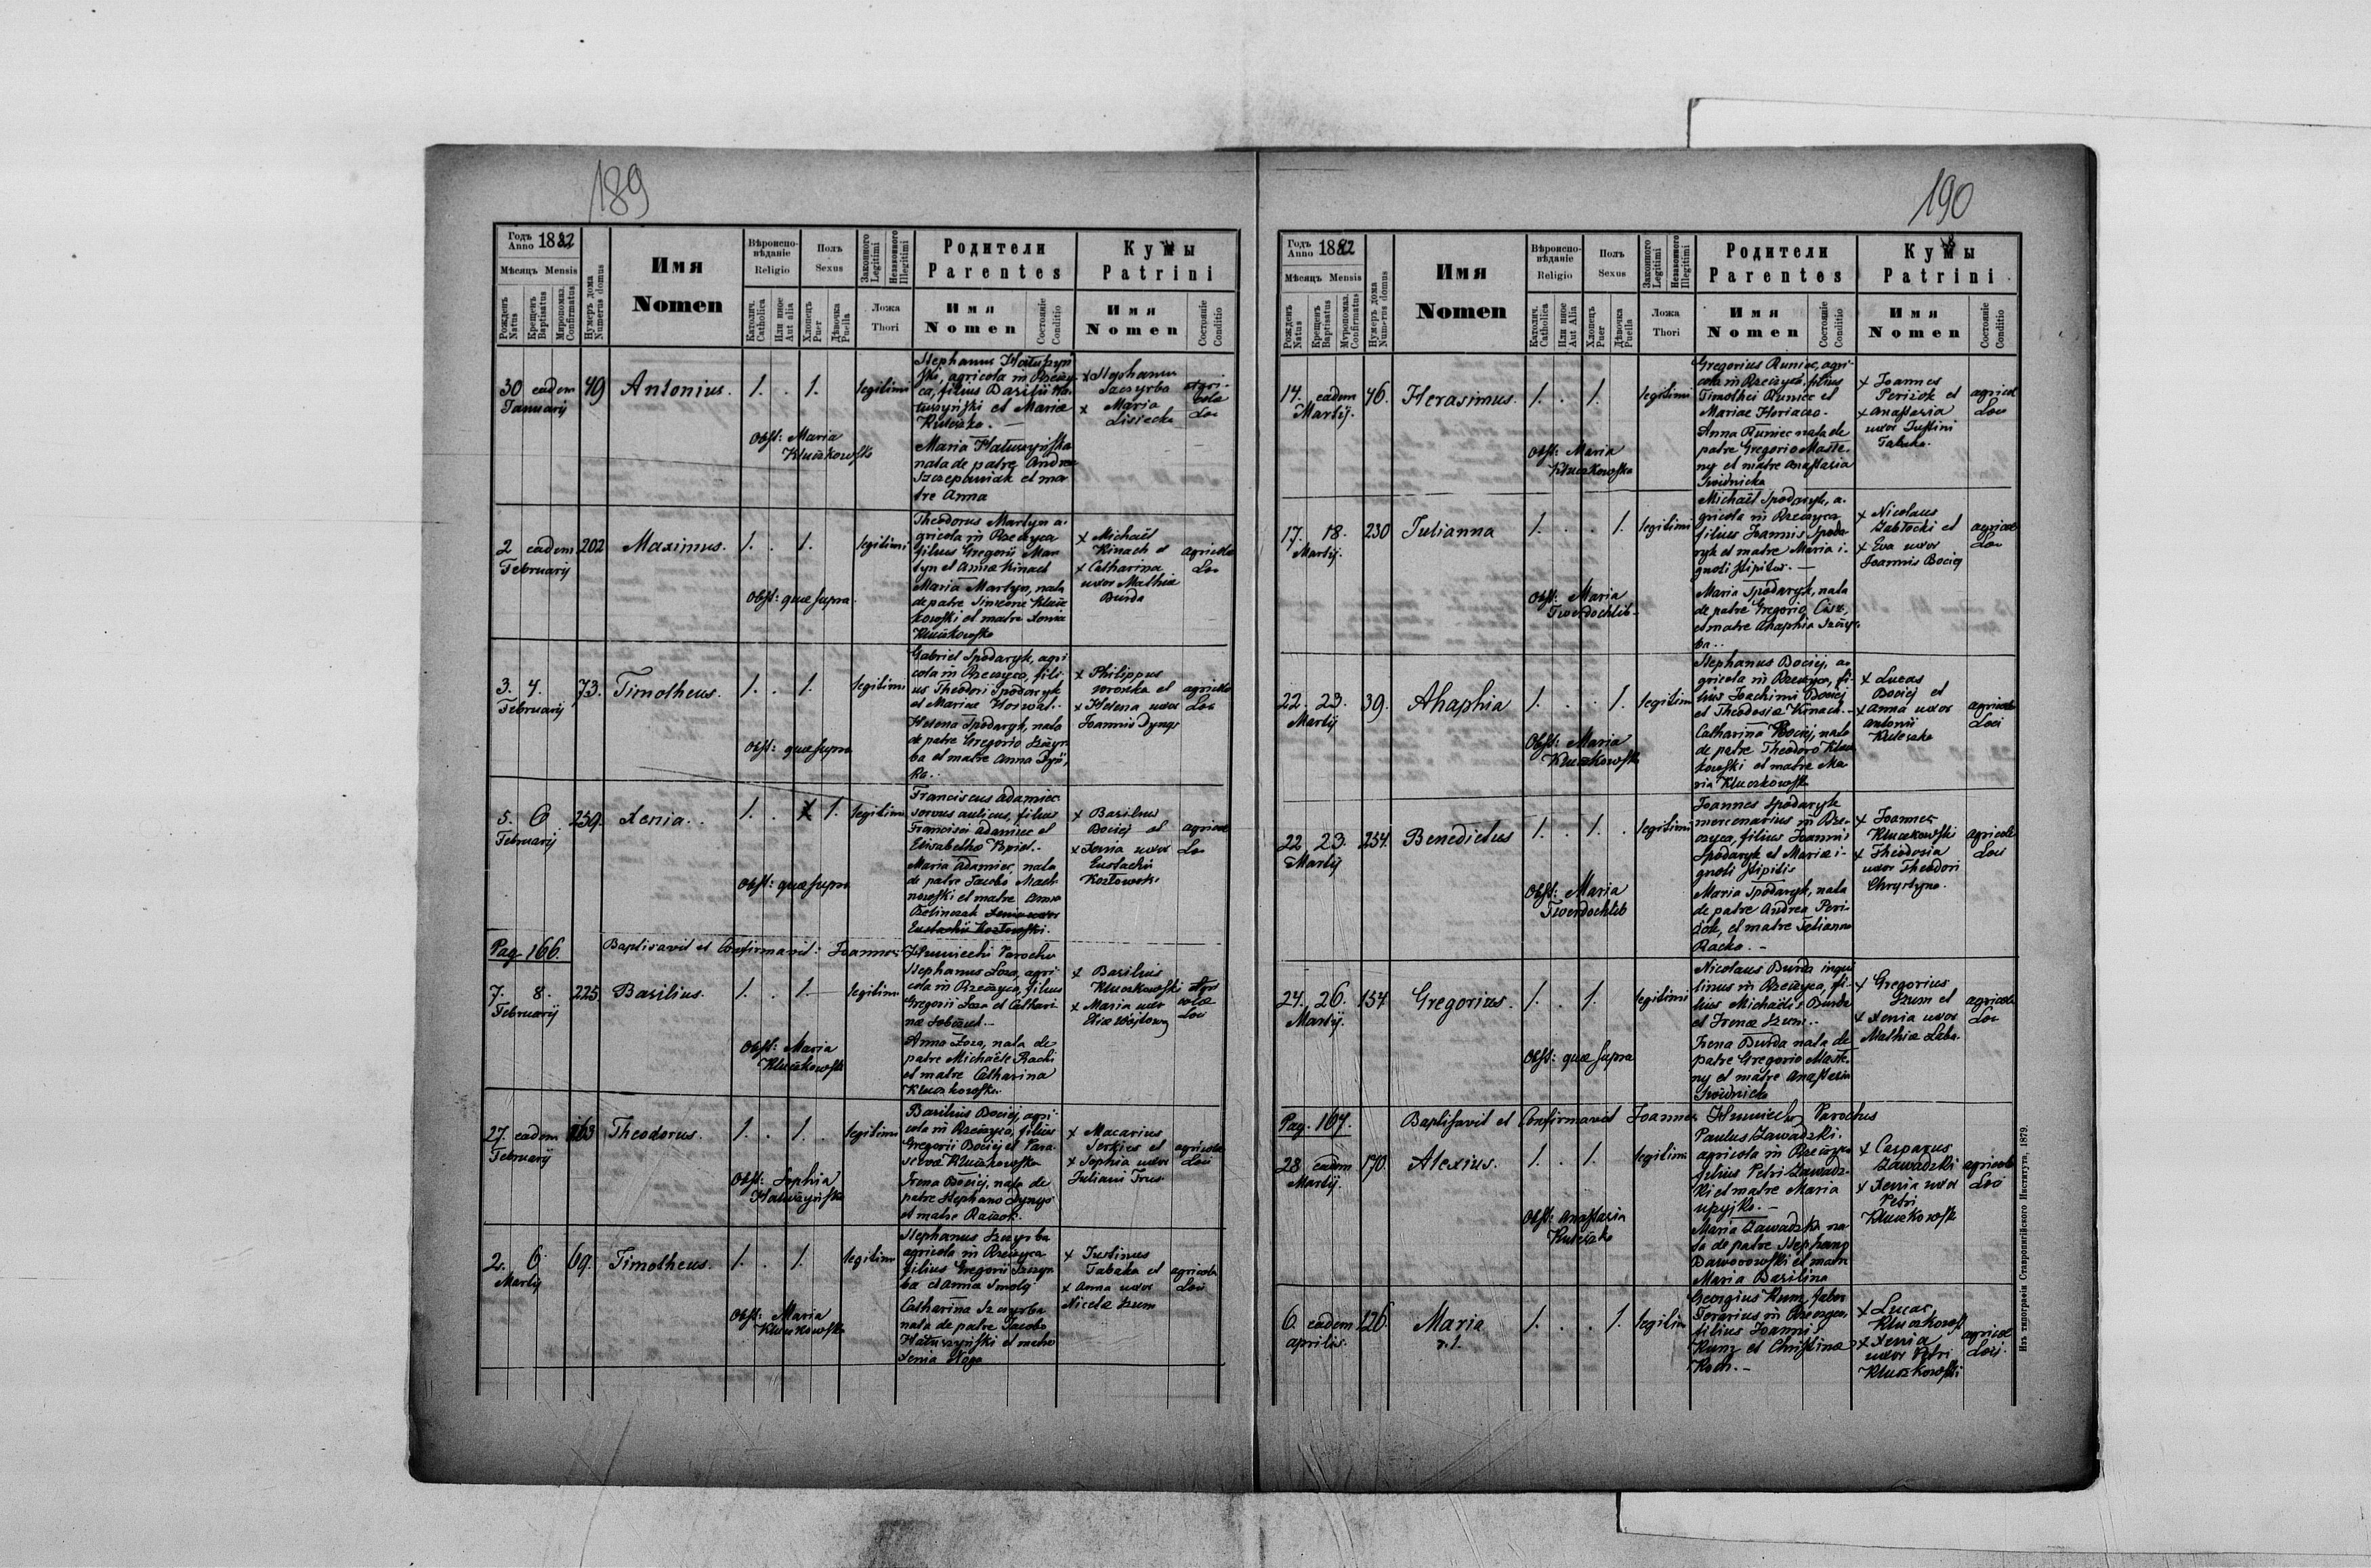 189
Годъ Anno 1882
Мѣсяцъ Mensis
Рожденъ Natus
Крещенъ Baptisatus
Миропомаз. Confirmatus
Нумеръ дома Numerus domus
Имя
Nomen
Вѣроиспо-
вѣданіе
Religio
Католич. Catholica
Или иное Aut alia
Полъ
Sexus
Хлопецъ Puer
Дѣвочка Puella
Законного Legitimi
Незаконного Illegitimi
Ложа
Thori
Родители
Parentes
Имя
Nomen
Состояніе Conditio
Кумы
Patrini
Имя
Nomen
Состояніе Conditio
30 eadem 49 Antonius. 1. . 1. legitimi
Januarij
Obst: Maria
Kluczkowska
Stephanus Hatuszyń
ski, agricola in Rzeczy
ca, filius Basilii Ha
tuszyński et Mariæ
Kuleszka. —
Maria Hatuszyńska
nata de patre Andrea
Szczepaniak et ma
tre Anna
x Stephanus
Szczyrba
x Maria
Lisiecka
agri-
colæ
Loci
2 eadem 202 Maximus. 1. . 1. legitimi
Februarij
Obst: quæ supra.
Theodorus Martyn a-
gricola in Rzeczyca
filius Gregorii Mar
tyn et Annæ Kinach
Maria Martyn, nata
de patre Simeone Klucz
kowski et matre Xenia
Kluczkowska
x Michaël
Kinach et
x Catharina
uxor Mathiæ
Burda
agricolæ
Loci
3. 4. 73. Timotheus. 1. . 1. legitimi
Februarij
Obst: quæ supra
Gabriel Spodaryk, agri
cola in Rzeczyca, fili
us Theodori Spodaryk
et Mariæ Horwat.
Helena Spodaryk, nata
de patre Gregorio Szczyr
ba et matre Anna
x Philippus
et
x Helena uxor
Joannis Dynys
agricolæ
Loci
5. 6 259. Xenia. 1. . 1. legitimi
Februarij
Obst: quæ supra
Franciscus Adamiec
servus aulicus, filius
Francisci Adamiec et
Elisabethæ
Maria Adamiec, nata
de patre Jacobo Mach
nowski et matre Anna
Xenia uxor
Eustachii Kozłowski.
x Basilius
Bociej et
x Xenia uxor
Eustachii
Kozłowski
agricolæ
Loci
Pag. 166. Baptisavit et Confirmavit: Joannes Humiecki Parochus
7. 8. 225 Basilius. 1. . 1. legitimi
Februarij
Obst: Maria
Kluczkowska
Stephanus Łoza, agri
cola in Rzeczyca, filius
Gregorii Łoza et Cathari
næ
Anna Łoza, nata de
patre Michaële Racki
et matre Catharina
Kluczkowska.
x Basilius
Kluczkowski
x Maria uxor
Eliæ Wójtowy
agri
colæ
Loci
27. eadem 163 Theodorus. 1. . 1. . legitimi
Februarij
Obst: Sophia
Hatuszyńska
Basilius Bociej, agri
cola in Rzeczyca, filius
Gregorii Bociej et Para
scevæ Kluczkowska
Irena Bociej, nata de
patre Stephano Dynys
et matre
x Macarius
Serkies et
x Sophia uxor
Juliani Trus
agricolæ
Loci
2. 6. 69. Timotheus. 1. . 1. legitimi
Martij
Obst: Maria
Kluczkowska
Stephanus Szczyrba
agricola in Rzeczyca
filius Gregorii Szczyr
ba et Anna Smoły
Catharina Szczyrba
nata de patre Jacobo
Hatuszyński et matre
Xenia Noga
x Justinus
Tabaka et
x Anna uxor
Nicolæ Szum
agricolæ
Loci
190
Годъ Anno 1882
Мѣсяцъ Mensis
Рожденъ Natus
Крещенъ Baptisatus
Муропомаз. Confirmatus
Нумеръ дома Numerus domus
Имя
Nomen
Вѣроиспо-
вѣданіе
Religio
Католич. Catholica
Или иное Aut Alia
Полъ
Sexus
Хлопецъ Puer
Дѣвочка Puella
Законного Legitimi
Незаконного Illegitimi
Ложа
Thori
Родители
Parentes
Имя
Nomen
Состояніе Conditio
Кумы
Patrini
Имя
Nomen
Состояніе Conditio
14. eadem 46. Herasimus. 1. . 1. legitimi
Martij.
Obst: Maria
Kluczkowska
Gregorius Runiec, agri-
cola in Rzeczyca, filius
Timothei Runiec et
Mariæ
Anna Runiec nata de
patre Gregorio Maste-
ny et matre Anastasia
Iwidnicka
x Joannes
Periżok et
x Anastasia
uxor Justini
Tabaka.
agricolæ
Loci
17. 18. 230 Julianna 1. . . 1. legitimi
Martij.
Obst: Maria
Twerdochlib
Michaël Spodaryk, a-
gricola in Rzeczyca
filius Joannis Spoda
ryk et matre Maria i-
gnoti stipitis. —
Maria Spodaryk, nata
de patre Gregorio Cisz,
et matre Ahaphia Szczyr-
ba..
x Nicolaus
Zabłocki et
x Eva uxor
Joannis Bociej
agricolæ
Loci
22. 23. 39. Ahaphia 1. . . 1. legitimi
Martij
Obst: Maria
Kluczkowska
Stephanus Bociej, a-
gricola in Rzeczyca, fi-
lius Joachimi Bociej
et Theodosiæ Kinach.
Catharina Bociej, nata
de patre Theodoro Klucz
kowski et matre Ma
ria Kluczkowska
x Lucas
Bociej et
x Anna uxor
Antonii
Kuleszka
agricolæ
Loci
22 23. 254. Benedictus 1. . 1. . legitimi
Martij
Obst: Maria
Twerdochlib
Joannes Spodaryk
mercenarius in Rze-
czyca, filius Joannis
Spodaryk et Mariæ i-
gnoti stipitis
Maria Spodaryk, nata
de patre Andrea Peri-
żok, et matre Julianna
Racka. —
x Joannes
Kluczkowski
x Theodosia
uxor Theodori
Chrystyna.
agricolæ
Loci
24. 26. 154 Gregorius. 1. . 1. legitimi
Martij.
Obst: quæ supra
Nicolaus Burda inqui
linus in Rzeczyca, fi-
lius Michaëlis Burda
et Irenæ Szum.
Irena Burda nata de
patre Gregorio Maste-
ny et matre Anastasia
Iwidnicka
x Gregorius
Szum et
x Xenia uxor
Mathiæ Łaba.
agricolæ
Loci
Pag. 167. Baptisavit et Confirmavit Joannes Humiecki Parochus
28 eadem 170. Alexius. 1. . 1. legitimi
Martij.
Obst: Anastasia
Kuleszka
Paulus Zawadzki.
agricola in Rzeczyca
filius Petri Zawadz-
ki et matre Maria
Maria Zawadzka na
ta de patre Stephano
Daworowski et matre
Maria Basilina
x Casparus
Zawadzki
x Xenia uxor
Petri
Kluczkowsk
agricolæ
Loci
6. eadem 126. Maria 1. . . 1. legitimi
Aprilis.
Georgius Kunz, faber
ferrarius in Rzeczyca,
filius Joannis
Kunz et Christinæ
Koch. —
x Lucas
Kluczkowsk
x Xenia
uxor Petri
Kluczkowski
agricolæ
Loci.
Изъ типографіи Ставропигійского Института, 1879.